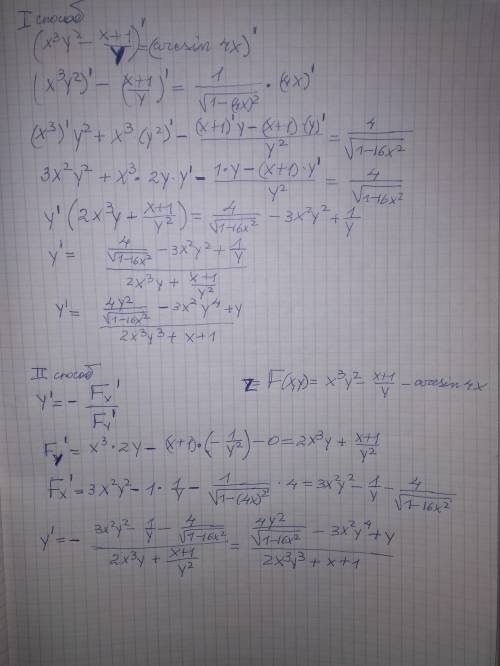 I способ
(x³y² - (x+1)/y)' = (arcsin 4x)'
(x³y²)' - ((x+1)/y)' = 1/√(1-(4x)²) · (4x)'
(x³)'y² + x³·(y²)' - ((x+1)'y - (x+1)·(y)')/y² = 4/√(1-16x²)
3x²y² + x³·2y·y' - (1·y - (x+1)·y')/y² = 4/√(1-16x²)
y'(2x³y + (x+1)/y²) = 4/√(1-16x²) - 3x²y² + 1/y
y' = (4/√(1-16x²) - 3x²y² + 1/y)/(2x³y + (x+1)/y²)
y' = (4y²/√(1-16x²) - 3x²y⁴ + y)/(2x³y³ + x+1)
II способ
y' = - Fx'/Fy' z= F(x,y) = x³y² - (x+1)/y - arcsin 4x
Fy' = x³·2y - (x+1)·(-1/y²) - 0 = 2x³y + (x+1)/y²
Fx' = 3x²y² - 1·1/y - 1/√(1-(4x)²) · 4 = 3x²y² - 1/y - 4/√(1-16x²)
y' = - (3x²y² - 1/y - 4/√(1-16x²))/(2x³y + (x+1)/y²) = (4y²/√(1-16x²) - 3x²y⁴ + y)/(2x³y³ + x+1)